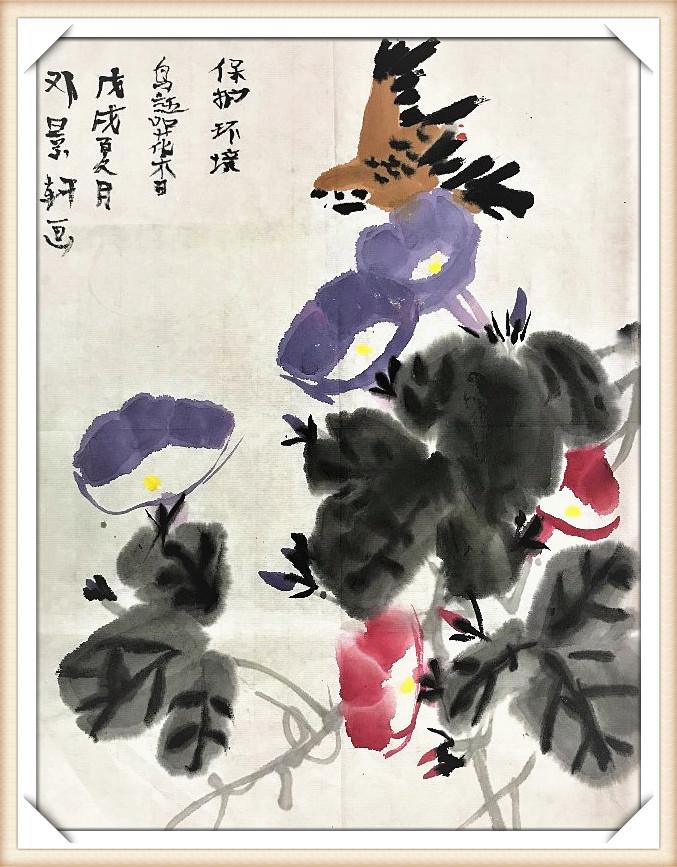 保护环境
鸟语花香
戊戌夏月
邓景轩画